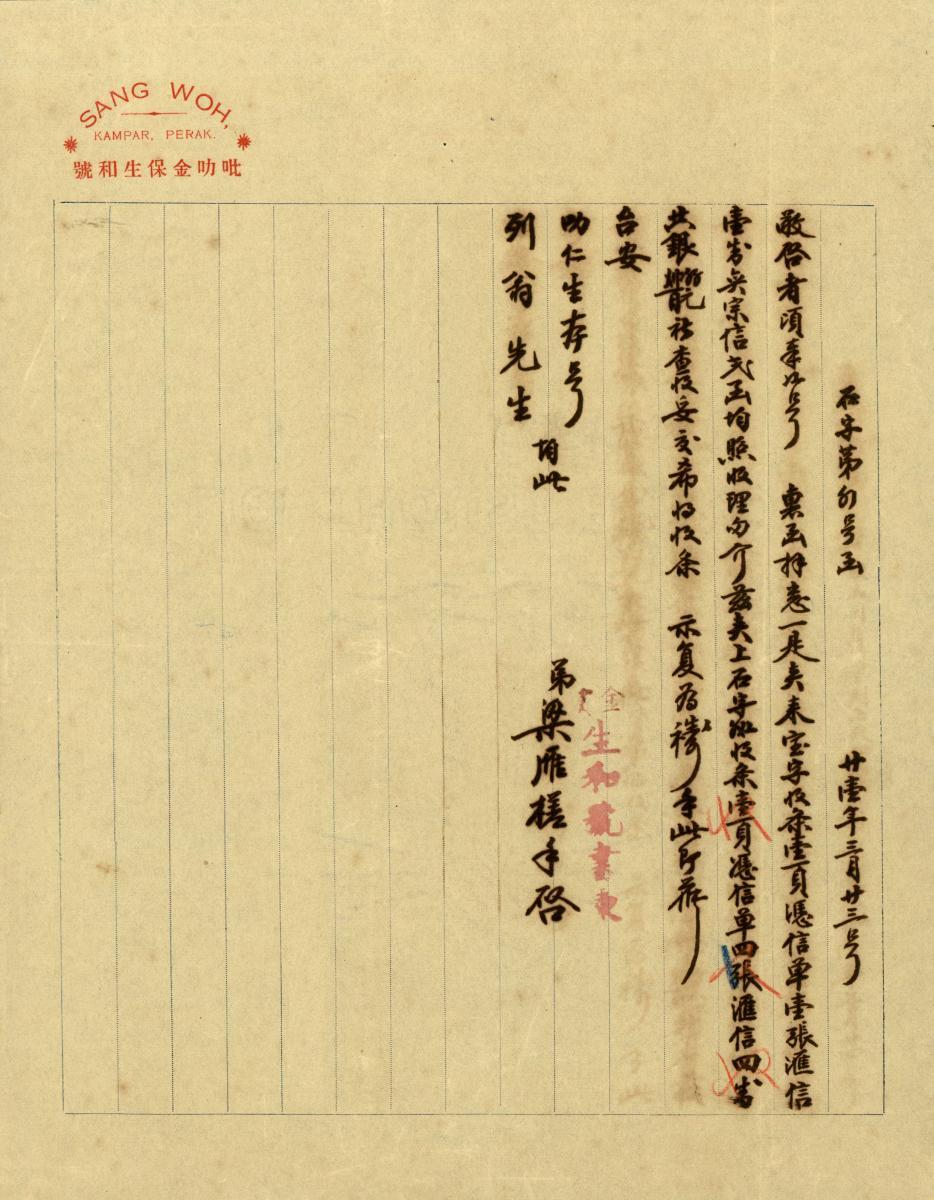 SANG WOH,
KAMPAR, PERAK.
號和生保金叻吡
石字第 号函 廿壹年三月廿三号
敬啓者頃奉 号 惠函拜悉一是夾来宝字收条壹頁憑信单壹張滙信
壹封吳宗信弍函均照收理勿介茲夾上石字 收条壹頁憑信单四張滙信四封
共銀 祈查收妥交希将收条 示复为禱专此即请
台安
叻仁生存号
列翁先生 均此
弟梁雁槎手啓
金 生和號書柬